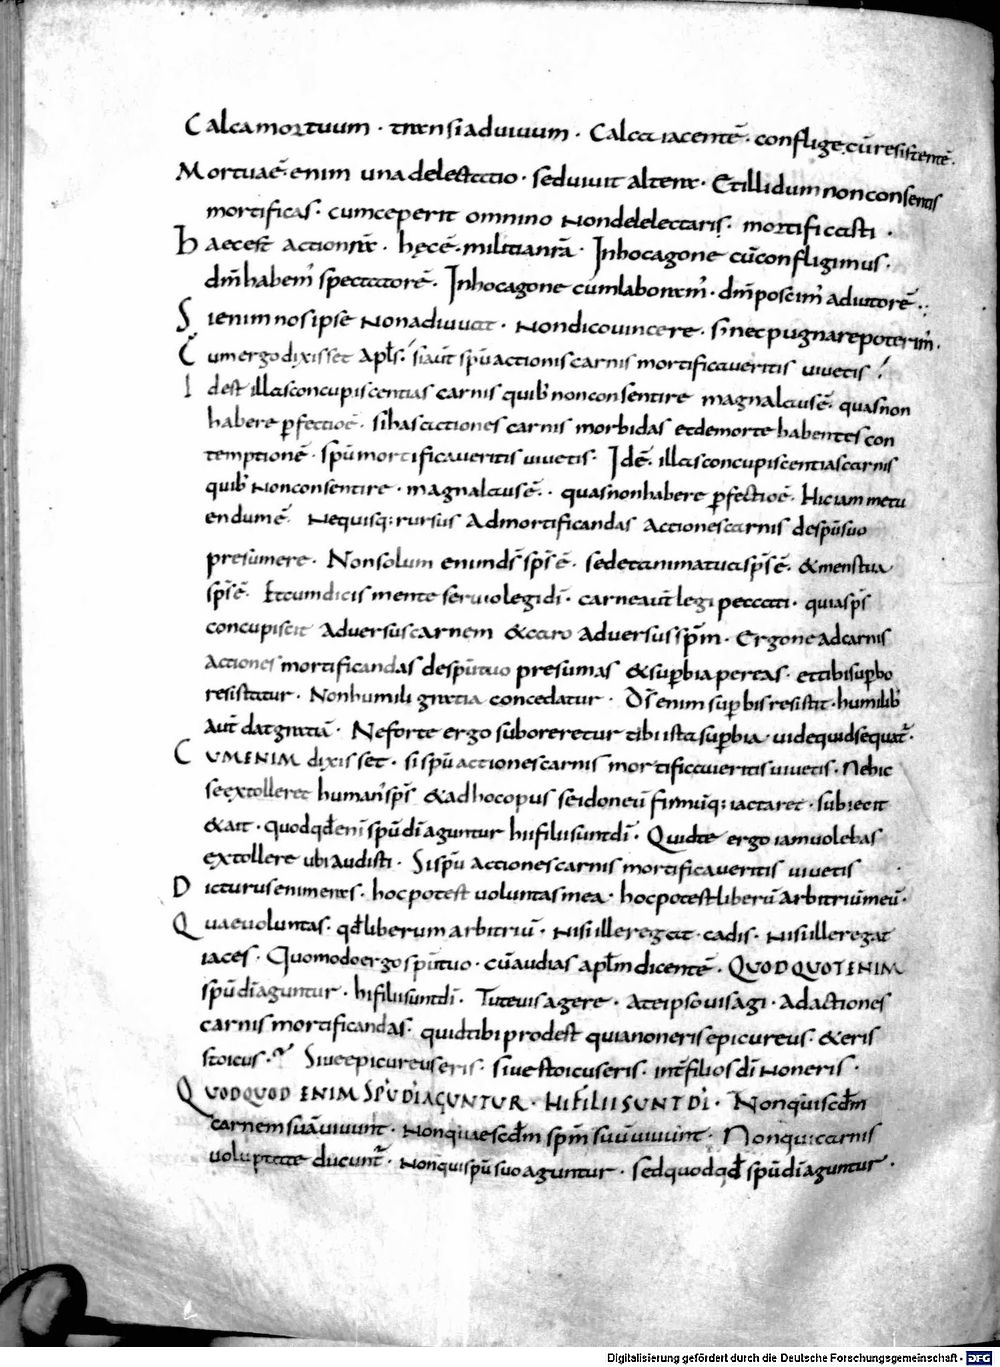 Calca mortuum · transi ad uiuum · Calca iacentē · conflige cū resistentē ·
Mortua ē enim una delectatio · sed uiuit altera · Et illi dum non consentis
mortificas · cum ceperit omnino non delelectaris · mortificasti ·
Haec est actio nrā · hęc ē · militia nrā · In hoc agone cū confligimus ·
dm̄ habem' spectatorē · In hoc agone cum laboram' · dm̄ poscim' adiutorē ·
Si enim nos ipse non adiuuat · non dico uincere · sī nec pugnare poterim' ·
Cum ergo dixisset apłs · si aut̄ spū actionis carnis mortificaueritis uiuetis
Id est illas concupiscentias carnis quib' non consentire magna laus ē · quas non
habere p̱fectio ē · si has actiones carnis morbidas et de morte habentes con
temptionē · spū mortificaueritis uiuetis · Id ē · illas concupiscentias carnis
quib' non consentire · magna laus ē · quas non habere p̱fectio ē · Hic iam metu
endum ē · Ne quisq: rursus ad mortificandas actiones carnis de spū suo
presumere · Non solum enim dš spš ē · sed et anima tua spš ē · & mens tua
spš ē · Et cum dicis mente seruio legi dī · carne aut̄ legi peccati · quia spš
concupiscit aduersus carnem & caro aduersus spm̄ · Ergo ne ad carnis
actiones mortificandas de spū tuo presumas & sup̱bia pereas · et tibi sup̱bo
resistatur · Non humili gratia concedatur · Dš enim sup̱bis resistit · humilib'
aut̄ dat gratiā · Ne forte ergo suboreretur tibi ista sup̱bia · uide quid sequat̄ ·
CUM ENIM dixisset · si spū actiones carnis mortificaueritis uiuetis · Ne hic
se extolleret human' spš & ad hoc opus se idoneū firmūq: iactaret · subiecit
& ait · quodqd̄ enī spū dī aguntur hii filii sunt dī · Quid te ergo iam uolebas
extollere ubi audisti · Si spū actiones carnis mortificaueritis uiuetis
Dicturus enim eras · hoc potest uoluntas mea · hoc potest liberū arbitriū meū ·
Quae uoluntas · qd̄ liberum arbitriū · nisi ille regat · cadis · nisi ille regat
iaces · Quomodo ergo spū tuo · cū audias apłm dicentē · QUOD QUOT ENIM
spū dī aguntur · hi filii sunt dī · Tu te uis agere · a te ipso uis agi · ad actiones
carnis mortificandas · quid tibi prodest quia non eris epicureus · & eris
stoicus · Siue epicureus eris · siue stoicus eris · int̄ filios dī non eris ·
QUOD QUOD ENIM SPŪ DĪ AGUNTUR · HI FILII SUNT DĪ · Non qui scdm̄
carnem suā uiuunt · non quae scdm̄ spm̄ suū uiuunt · Non qui carnis
uoluptate ducunt̄ · non qui spū suo aguntur · sed quodqd̄ spū dī aguntur ·
Digitalisierung gefördert durch die Deutsche Forschungsgemeinschaft · DFG